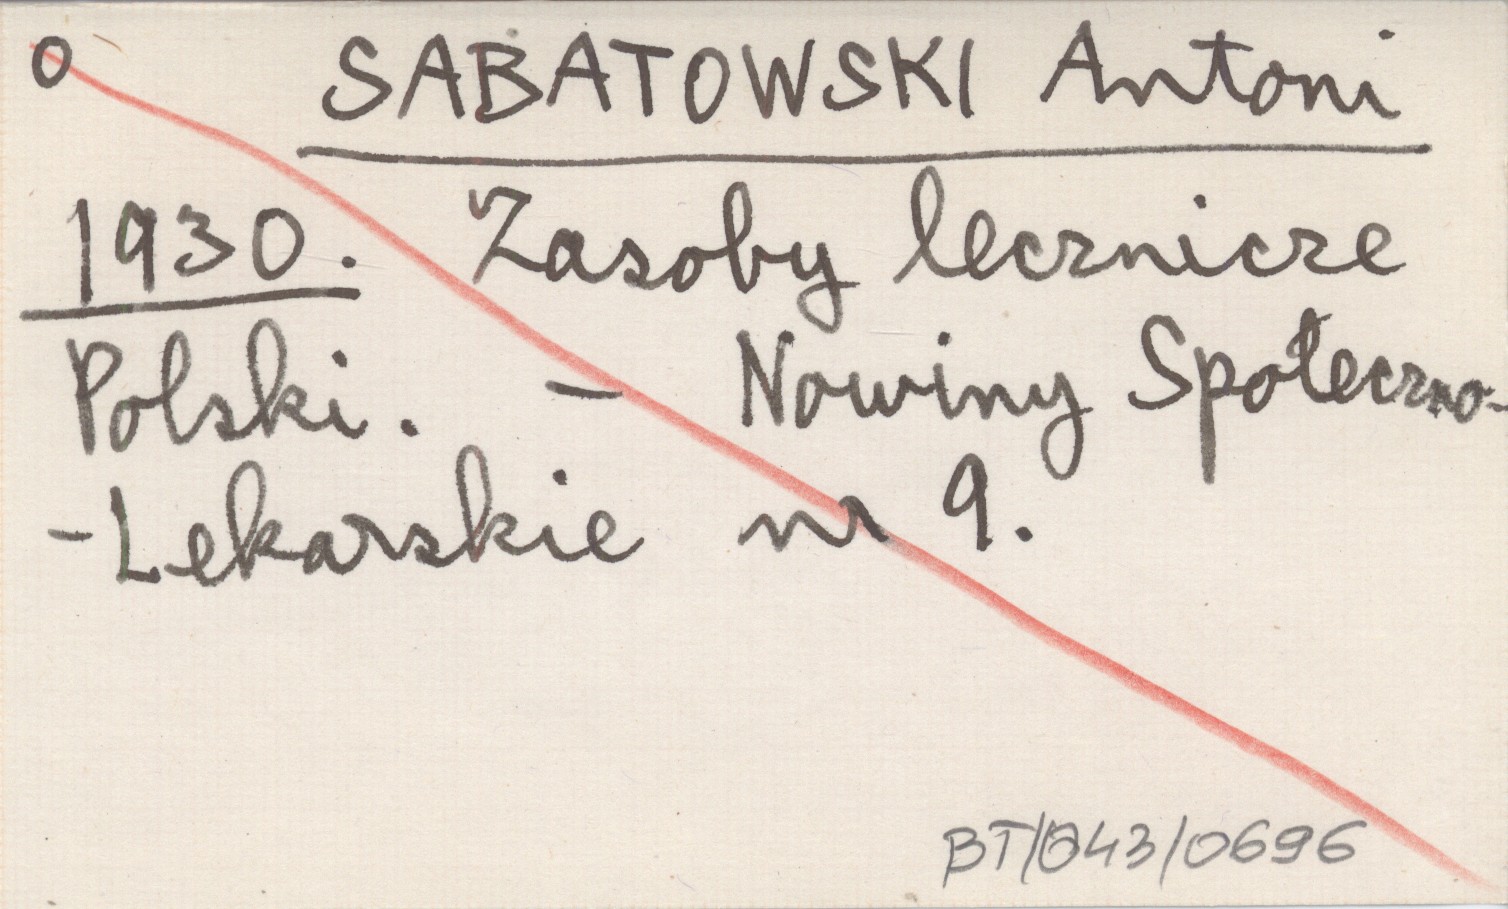 O SABATOWSKI Antoni
1930. Zasoby lecznicze
Polski. - Nowiny Społeczno-
-Lekarskie nr 9.
BT/043/0696